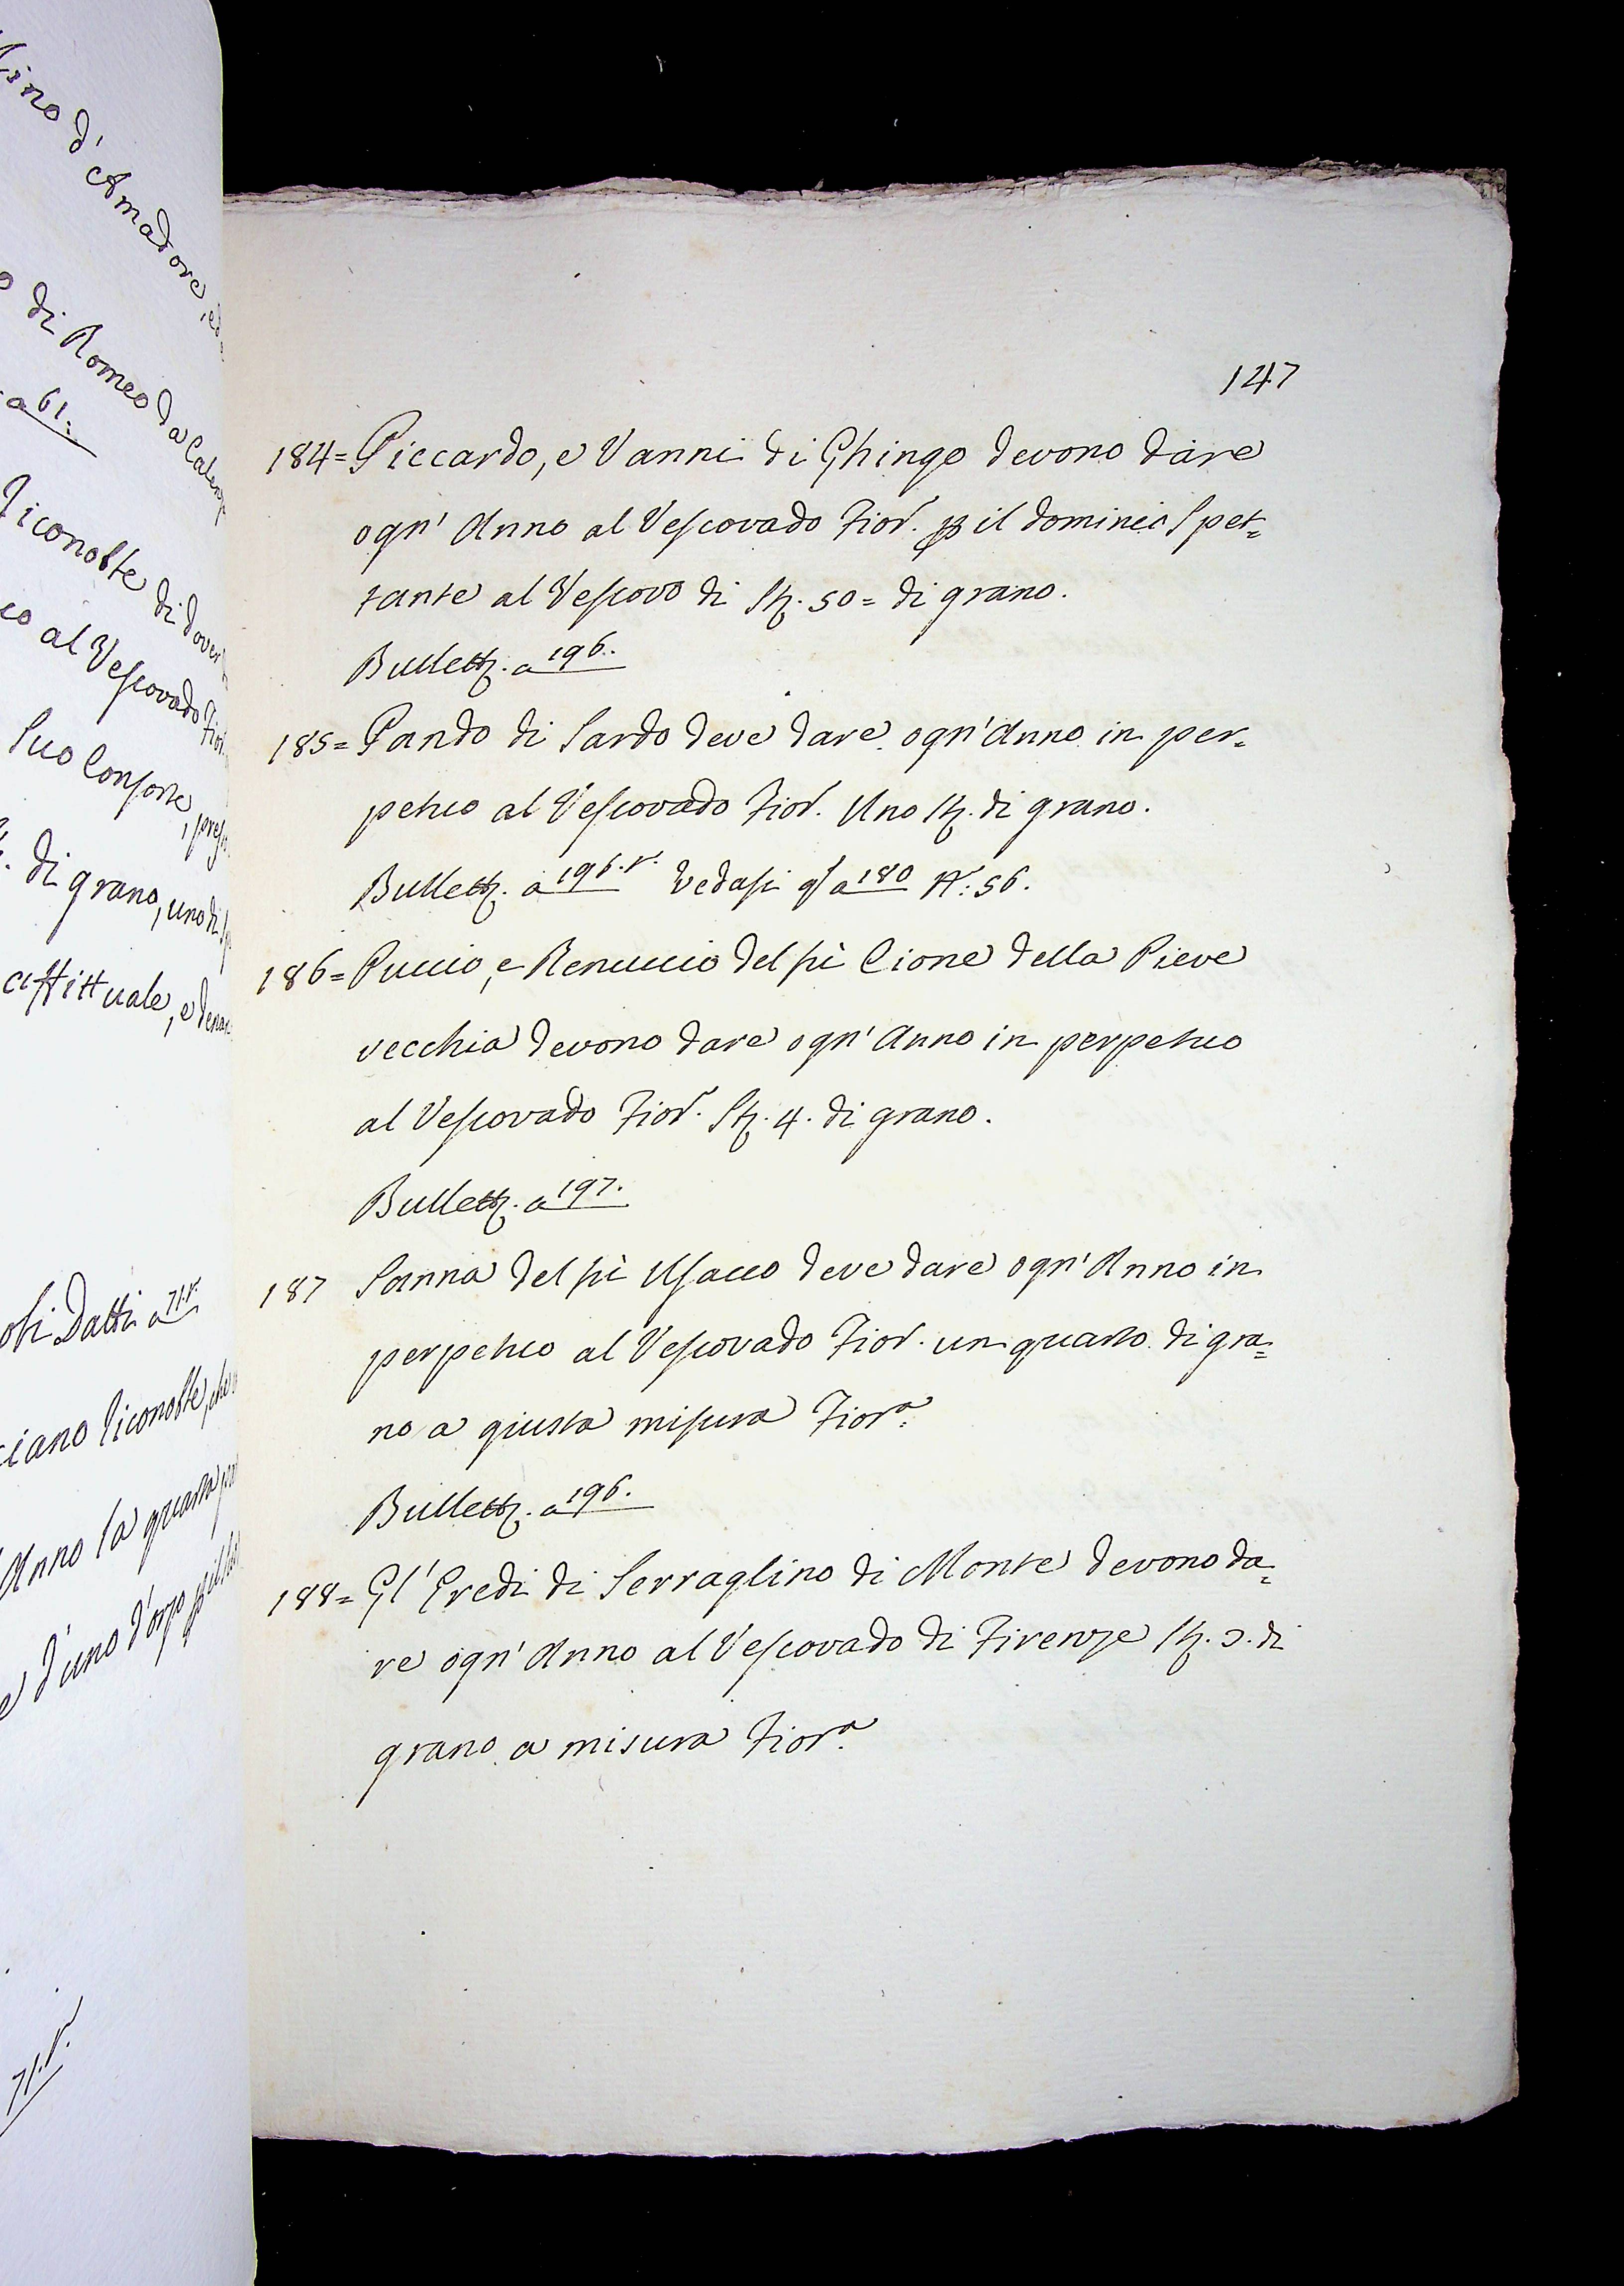 ino d'Amadore, ed
o di Romeo da Calen
a 61:
Ticonolte di dover
co al Vescovado Fior.
Suo Consorte, pres
di grano, uno di
affittuale, e
obi Datti a 71.r.
ciano Ticonolte, che
Anno la quarta
e d'uno d'orzo
71.r.
147
184= Piccardo, e Vanni di Ghingo devono dare
ogn' Anno al Vescovado Fior. p il dominio Spet=
tante al Vescovo di St. 50= di grano.
Bullett. a 196.
185= Pando di Sardo deve dare ogn' Anno in per=
petuo al Vescovado Fior. Uno St. di grano.
Bullett. a 196.r. Vedasi qs a 180 N: 56.
186= Puccio, e Renuccio del fù Cione della Pieve
vecchia devono dare ogn' Anno in perpetuo
al Vescovado Fior. St. 4. di grano.
Bullett. a 197.
187 Sanna del fù Usacco deve dare ogn' Anno in
perpetuo al Vescovado Fior. un quarto di gra=
no a giusta misura Fiora.
Bullett. a 196.
188= Gl' Eredi di Serraglino di Monte devono da=
re ogn' Anno al Vescovado di Firenze St. 3. di
grano a misura Fiora.